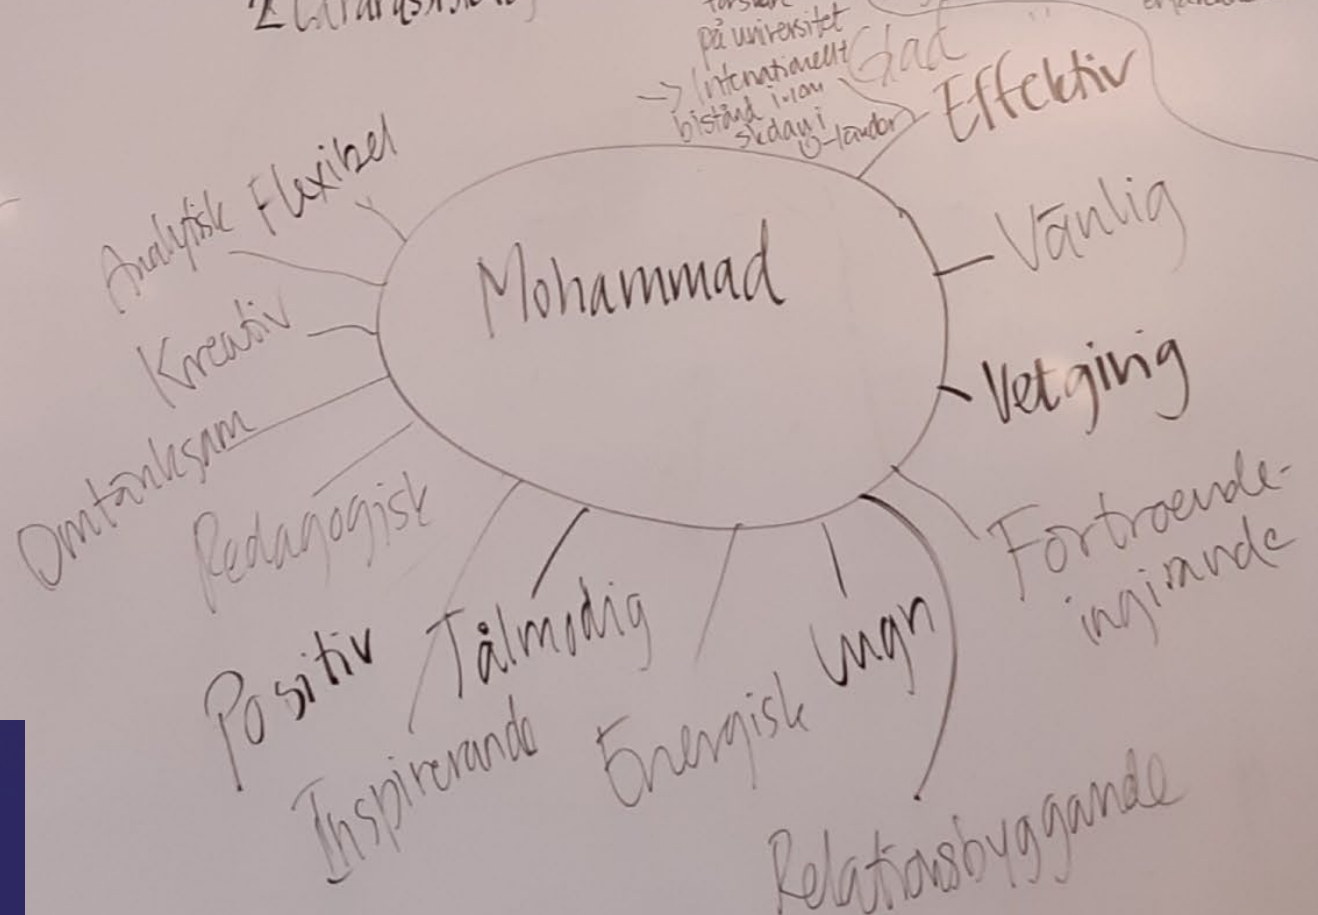 på universitet
→ Internationellt
bistånd inom
skdawi
U-länder
Glad
Effektiv
Vänlig
Vetgirig
Förtroende-
ingivande
Relationsbyggande
Lugn
Energisk
Tålmodig
Inspirerande
Positiv
Pedagogisk
Omtänksam
Kreativ
Analytisk
Flexibel
Mohammad